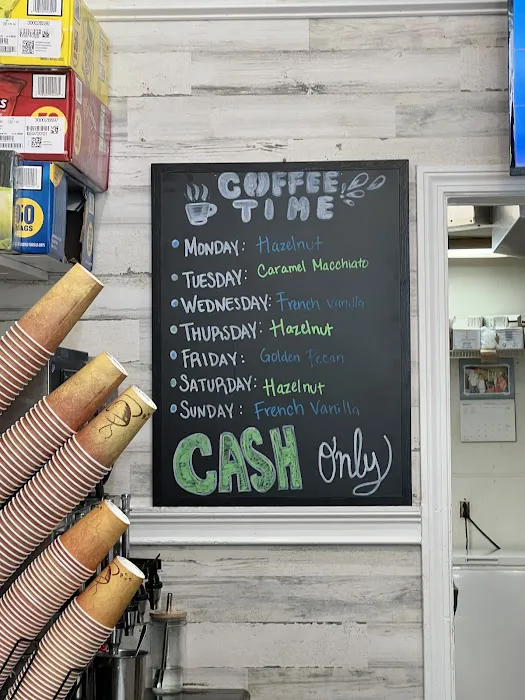 COFFEE
TIME
MONDAY: Hazelnut
TUESDAY: Caramel Macchiato
WEDNESDAY: French Vanilla
THURSDAY: Hazelnut
FRIDAY: Golden Pecan
SATURDAY: Hazelnut
SUNDAY: French Vanilla
CASH Only